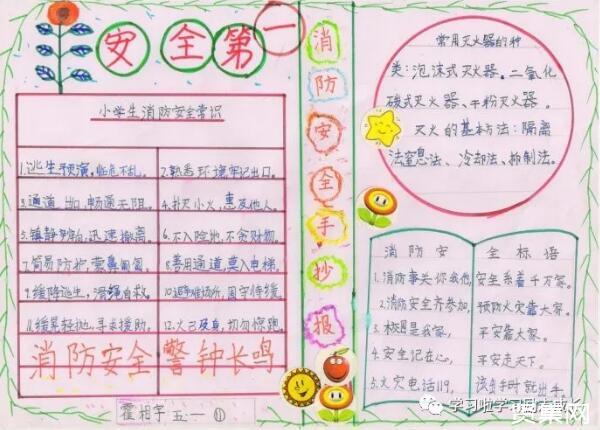 安全第一
小学生消防安全常识
1.逃生预演,临危不乱。
2.熟悉环境,牢记出口。
3.通道出口,畅通无阻。
4.扑灭小火,惠及他人。
5.镇静判断,迅速撤离。
6.不入险地,不贪财物。
7.简易防护,蒙鼻匍匐。
8.善用通道,莫入电梯。
9.缓降逃生,滑绳自救。
10.避难场所,固守待援。
11.缓晃轻抛,寻求援助。
12.火已及身,切勿惊跑。
消防安全 警钟长鸣
霍相宇 五一 ⑪
消防安全手抄报
常用灭火器的种
类:泡沫式灭火器。二氧化
碳式灭火器、干粉灭火器。
灭火的基本方法:隔离
法窒息法、冷却法、抑制法。
消防安全标语
1.消防事关你我他,安全系着千万家。
2.消防安全齐参加,预防火灾靠大家。
3.校园是我家,平安靠大家。
4.安全记在心,平安走天下。
5.火灾电话119,该出手时就出手。
学习啦学习
资集网